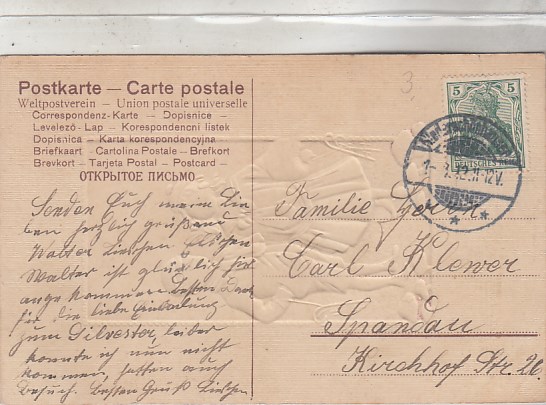 Postkarte — Carte postale
Weltpostverein - Union postale universelle
Correspondenz-Karte — Dopisnice -
Levelező-Lap — Korespondenčni listek
Dopisnica — Karta korespondencyjna
Briefkaart - Cartolina Postale - Brefkort
Brevkort - Tarjeta Postal - Postcard -
ОТКРЫТОЕ ПИСЬМО
3
5 5
DEUTSCHES
Senden Euch meine Lie
ben herzlich grüßend
Walter Lieschen
Walter ist glücklich hir
ange kommen besten Dank
für die liebe Einladung
zum Silvester, leider
konnte ich nun nicht
kommen, hatten auch
Besuch. Besten Gruß Lieschen
Familie
Carl Klewer
Spandau
Kirchhof Str. 26